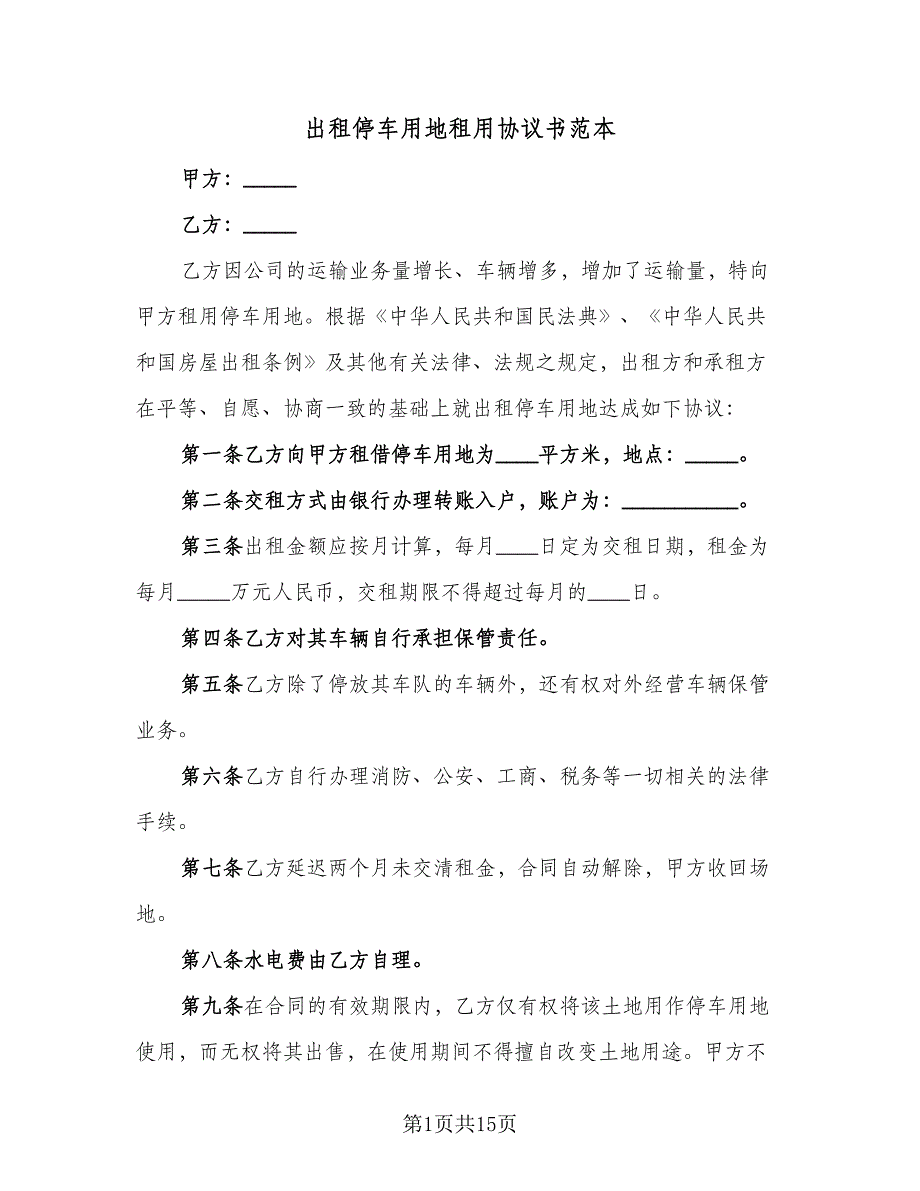 出租停车用地租用协议书范本
甲方：_____
乙方：_____
乙方因公司的运输业务量增长、车辆增多，增加了运输量，特向
甲方租用停车用地。根据《中华人民共和国民法典》、《中华人民共
和国房屋出租条例》及其他有关法律、法规之规定，出租方和承租方
在平等、自愿、协商一致的基础上就出租停车用地达成如下协议：
第一条乙方向甲方租借停车用地为____平方米，地点：_____。
第二条交租方式由银行办理转账入户，账户为：___________。
第三条出租金额应按月计算，每月____日定为交租日期，租金为
每月_____万元人民币，交租期限不得超过每月的____日。
第四条乙方对其车辆自行承担保管责任。
第五条乙方除了停放其车队的车辆外，还有权对外经营车辆保管
业务。
第六条乙方自行办理消防、公安、工商、税务等一切相关的法律
手续。
第七条乙方延迟两个月未交清租金，合同自动解除，甲方收回场
地。
第八条水电费由乙方自理。
第九条在合同的有效期限内，乙方仅有权将该土地用作停车用地
使用，而无权将其出售，在使用期间不得擅自改变土地用途。甲方不
第1页共15页